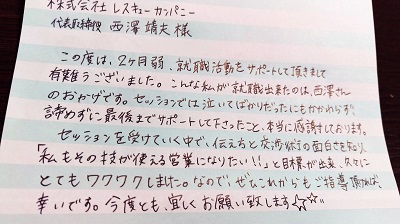 株式会社 レスキューカンパニー
代表取締役 西澤 靖夫 様
この度は、2ヶ月弱、就職活動をサポートして頂きまして
有難うございました。こんな私が就職出来たのは、西澤さん
のおかげです。セッションでは泣いてばかりだったにもかかわらず、
諦めずに最後までサポートして下さったこと、本当に感謝しております。
セッションを受けていく中で、伝え方と交渉術の面白さを知り、
「私もその技が使える営業になりたい!!」と目標が出来、久々に
とてもワクワクしました。なので、ぜひこれからもご指導頂ければ、
幸いです。今度とも、宜しくお願い致します☆☆"